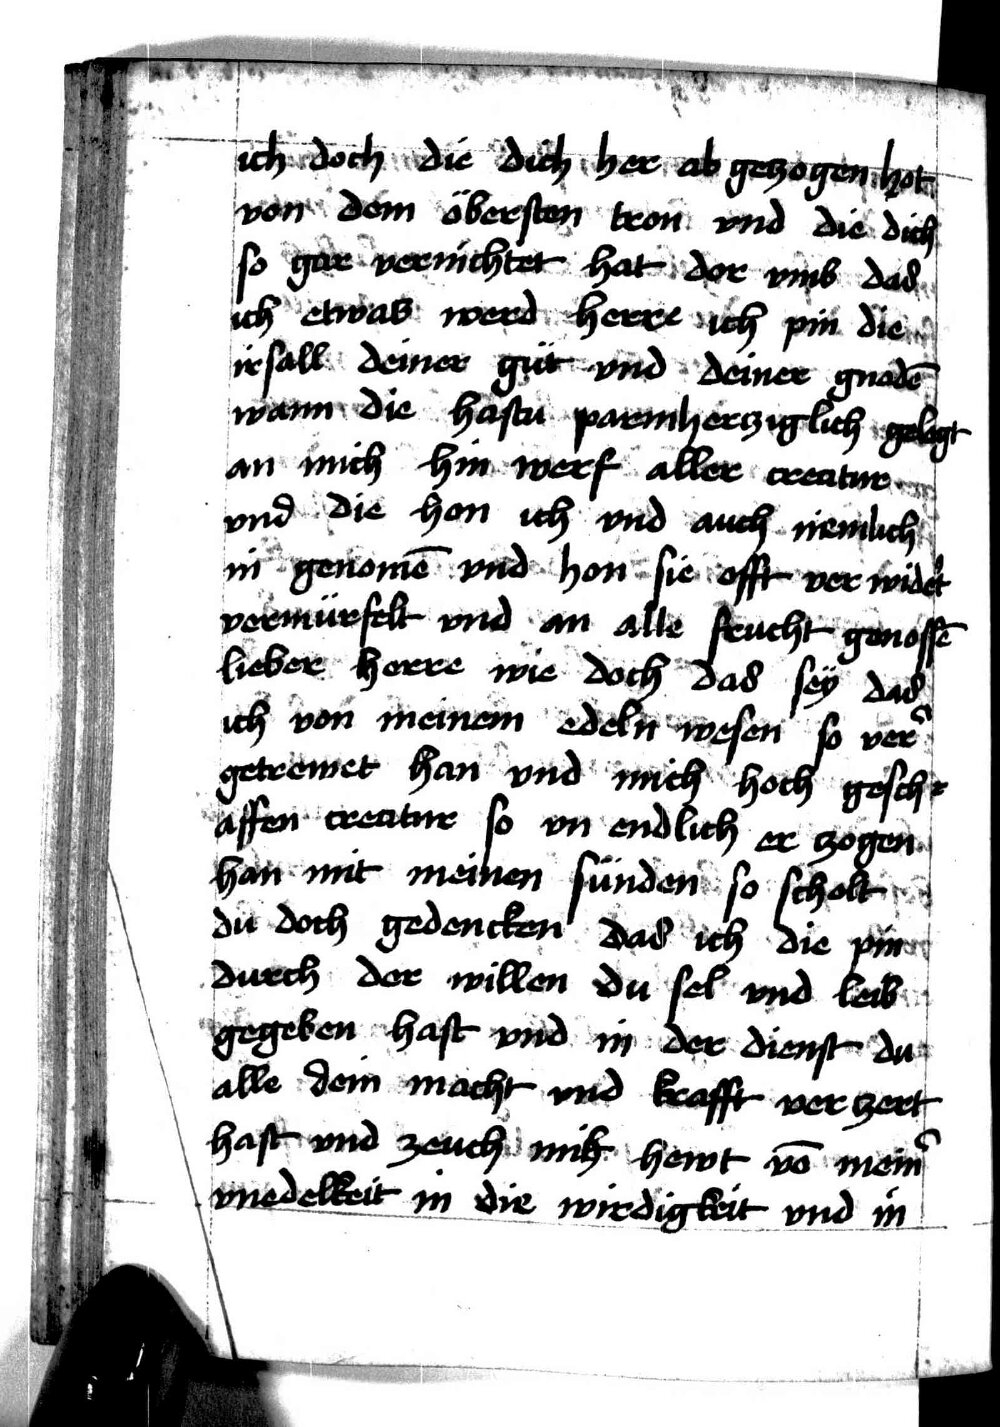 ich doch die dich her ab gezogen hot
von dem öbersten tron vnd die dich
so gar vernichtet hat dor vmb das
ich etwas werd herre ich pin die
irsall deiner güt vnd deiner gnadē
wann die hastu parmherziglich gelegt
an mich hin werf aller creatur
vnd die hon ich vnd auch niemlich
in genomē vnd hon sie offt ver wider̄t
vermürfelt vnd an alle frucht genossē
lieber herre wie doch das seÿ das
ich von meinem edeln wesen so ver
getremet han vnd mich hoch gesch-
affen creatur so vn endlich er zogen
han mit meinen sünden so scholt
du doch gedencken das ich die pin
durch der willen du sel vnd leib
gegeben hast vnd in der dienst du
alle dein macht vnd krafft ver zert
hast vnd zeuch mih hewt vō mein̄
vnedelkeit in die wirdigkeit vnd in